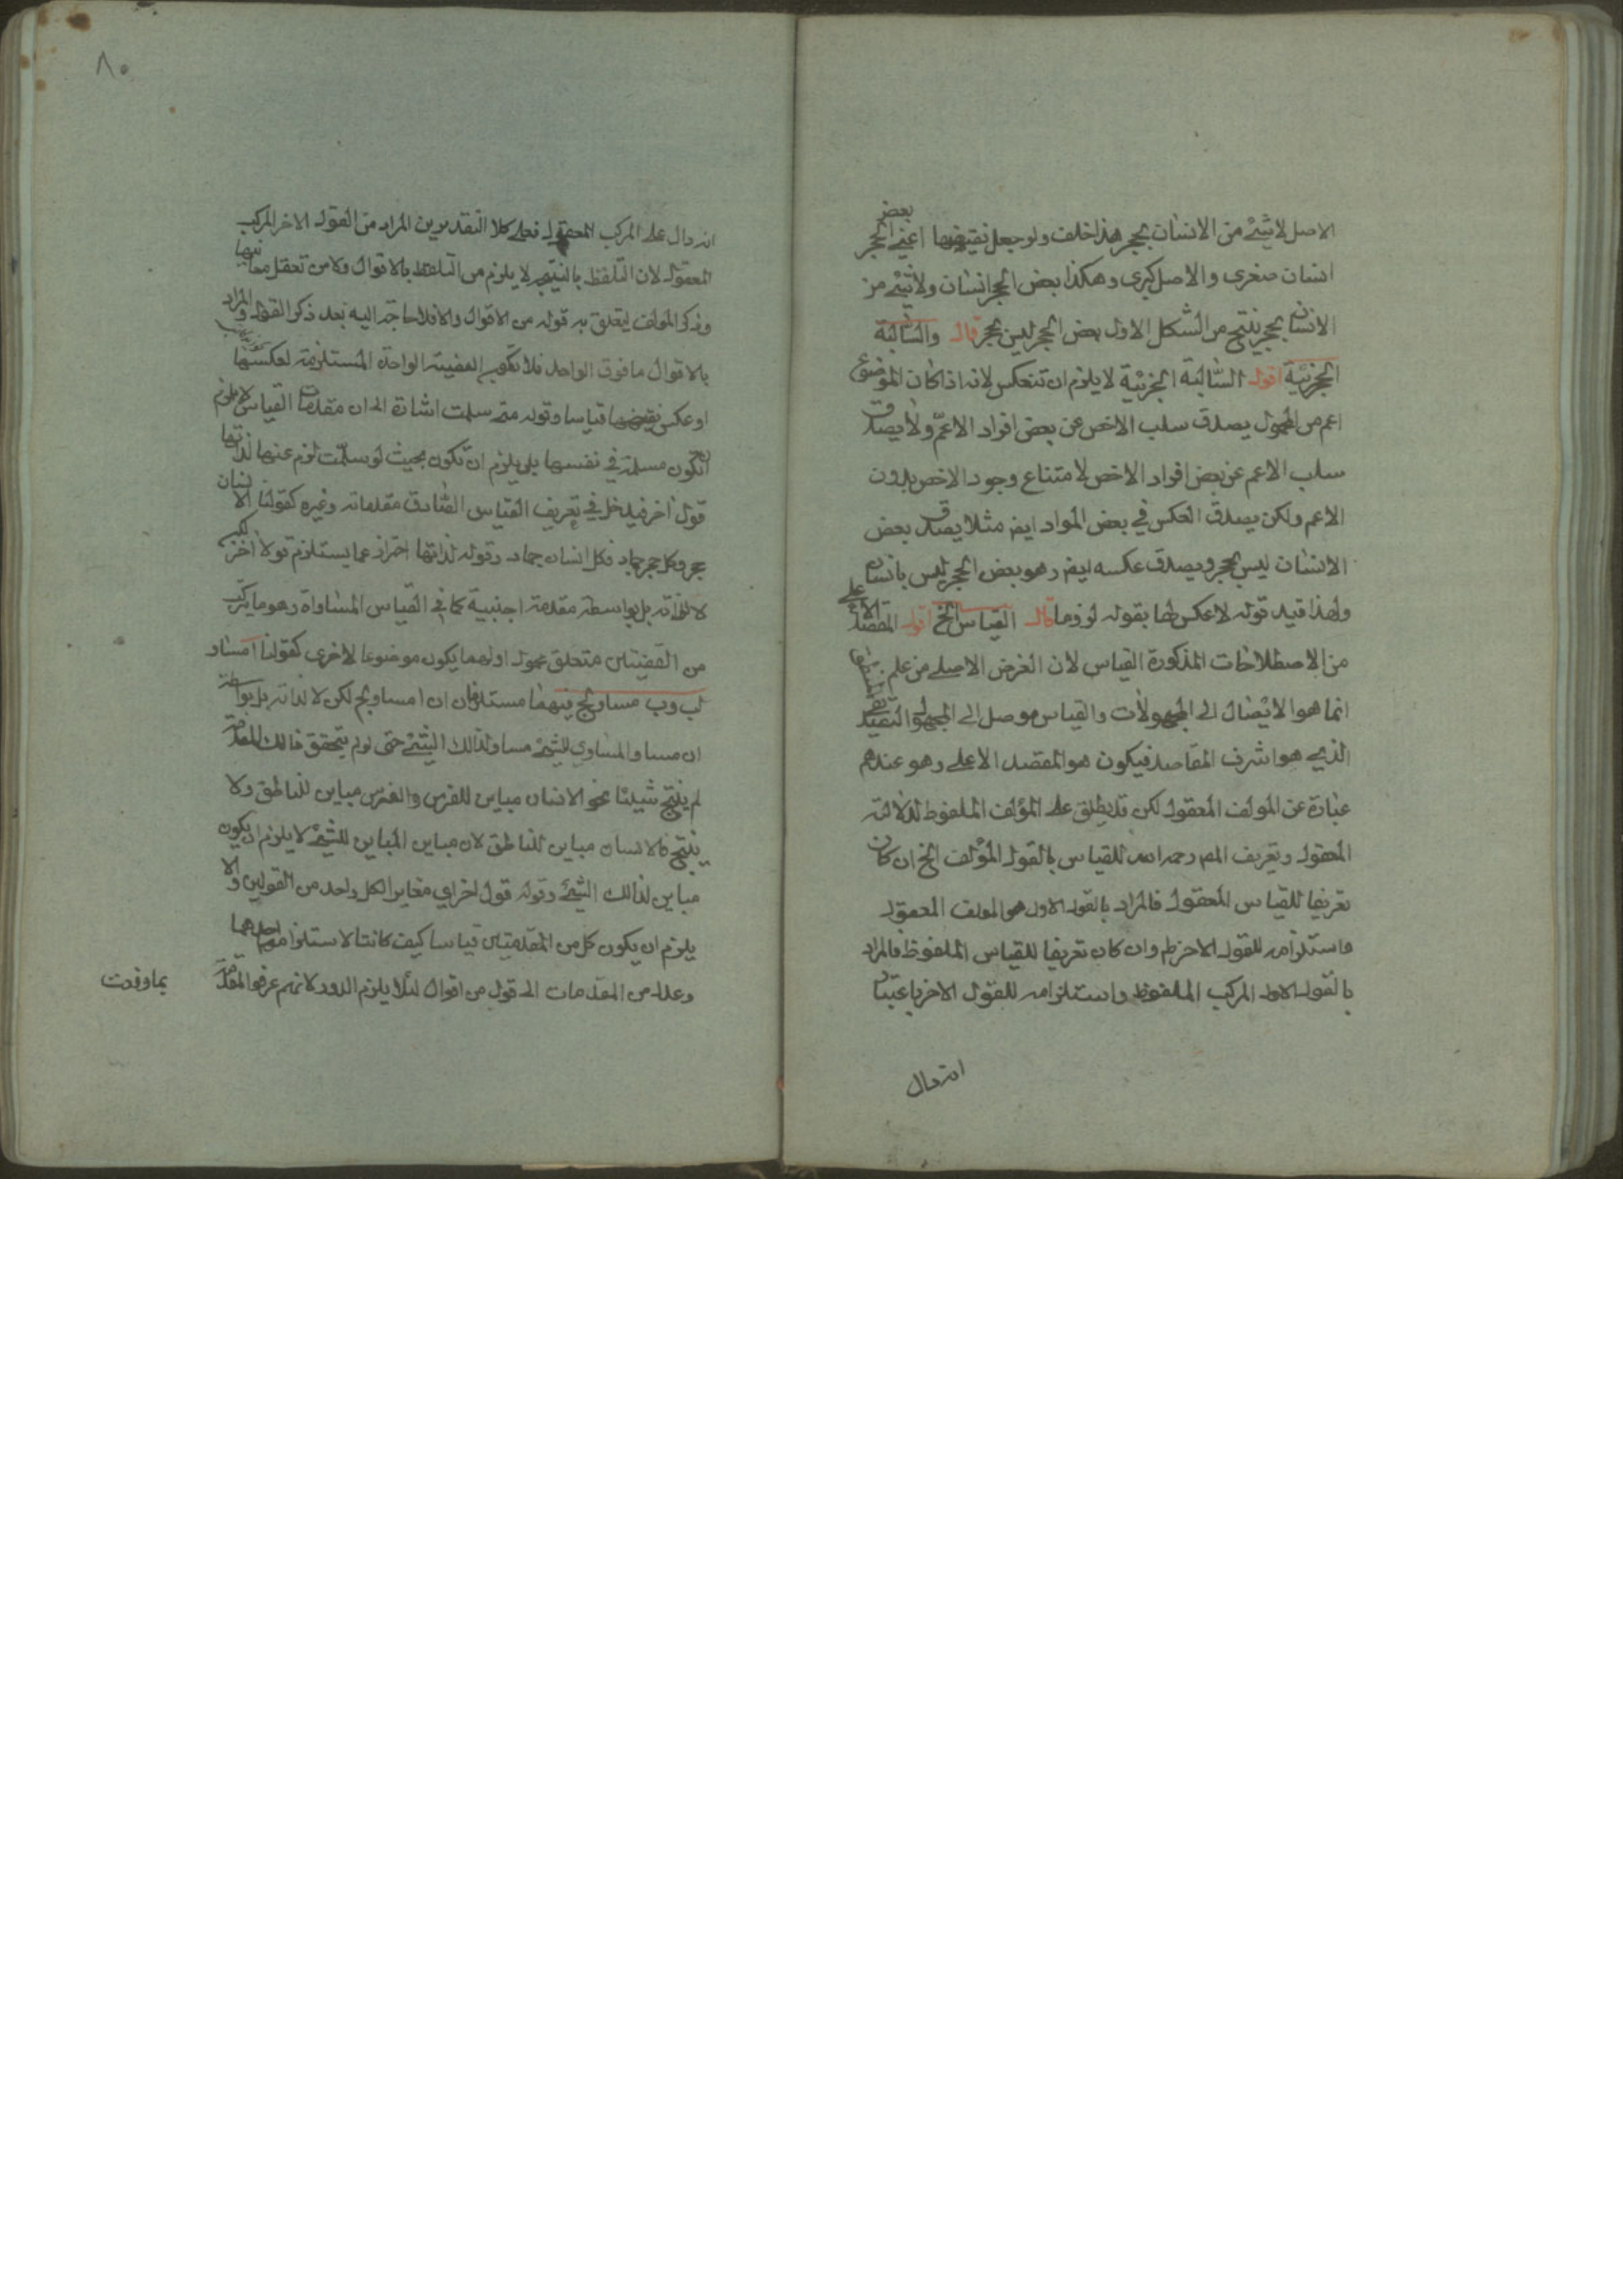 الاصل لا شئ من الانسان بحجر هذا خلف ولو جعل نقيضها اعني بعض الحجر
انسان صغرى والاصل كبرى وهكذا بعض الحجر انسان ولا شئ من
الانسان بحجر ينتج من الشكل الاول بعض الحجر ليس بحجر قال والسالبة
الجزئية اقول السالبة الجزئية لا يلزم ان تنعكس لانه اذا كان الموضوع
اعم من المحمول يصدق سلب الاخص عن بعض افراد الاعم ولا يصدق
سلب الاعم عن بعض افراد الاخص لامتناع وجود الاخص بدون
الاعم ولكن يصدق العكس في بعض المواد ايضا مثلا يصدق بعض
الانسان ليس بحجر ويصدق عكسه ايضا وهو بعض الحجر ليس بانسان
ولهذا قيد قوله لا عكس لها بقوله لزوما قال القياس الخ اقول المقصد الاعلى
من الاصطلاحات المذكورة القياس لان الغرض الاصلي من علم
انما هو الايصال الى المجهولات والقياس موصل الى المجهول التصديقي
الذي هو اشرف المقاصد فيكون هو المقصد الاعلى وهو عندهم
عبارة عن المولف المعقول لكن قد يطلق على المؤلف الملفوظ لدلالته
المعقول وتعريف المص رحمه الله للقياس بالقول المؤلف الخ ان كان
تعريفا للقياس المعقول فالمراد بالقول الاول هو المولف المعقول
واستلزامه للقول الاخر ظم وان كان تعريفا للقياس الملفوظ فالمراد
بالقول الاول المركب الملفوظ واستلزامه للقول الاخر باعتبار
انه دال
٨٠
انه دال على المركب المعقول فعلى كلا التقديرين المراد من القول الاخر المركب
المعقول لان التلفظ بالنتيجة لا يلزم من التلفظ بالاقوال ولا من تعقل معانيها
وذكر المولف ليتعلق به قوله من الاقوال والا فلا حاجة اليه بعد ذكر القول والمراد
بالاقوال ما فوق الواحد فلا تكون القضية الواحدة المستلزمة لعكسها
او عكس نقيضها قياسا وقوله متى سلمت اشارة الى ان مقدمات القياس لا يلزم
ان تكون مسلمة في نفسها بل يلزم ان تكون بحيث لو سلمت لزم عنها لذاتها
قول اخر فيدخل في تعريف القياس الصادق مقدماته وغيره كقولنا الانسان
حجر وكل حجر جماد فكل انسان جماد وقوله لذاتها احتراز عما يستلزم قولا اخر لكن
لا لذاته بل بواسطة مقدمة اجنبية كما في القياس المساواة وهو ما يتركب
من القضيتين متعلق محمول اولهما يكون موضوعا لاخرى كقولنا ا مساو
لب وب مساو لج فهما مستلزمان ان ا مساو لج لكن لا لذاته بل بواسطة
ان مساو المساوي للشئ مساو لذالك الشئ حتى لو لم يتحقق ذالك المقدمة
لم ينتج شيئا نحو الانسان مباين للفرس والفرس مباين للناطق ولا
ينتج فالانسان مباين للناطق لان مباين المباين للشئ لا يلزم ان يكون
مباين لذالك الشئ وقوله قول اخر اي مغاير لكل واحد من القولين والا
يلزم ان يكون كل من المقدمتين قياسا كيف كانتا لاستلزامهما احدهما
وعدل من المقدمات الى قول من اقوال لئلا يلزم الدور لانهم عرفوا المقدمة
بما وقعت